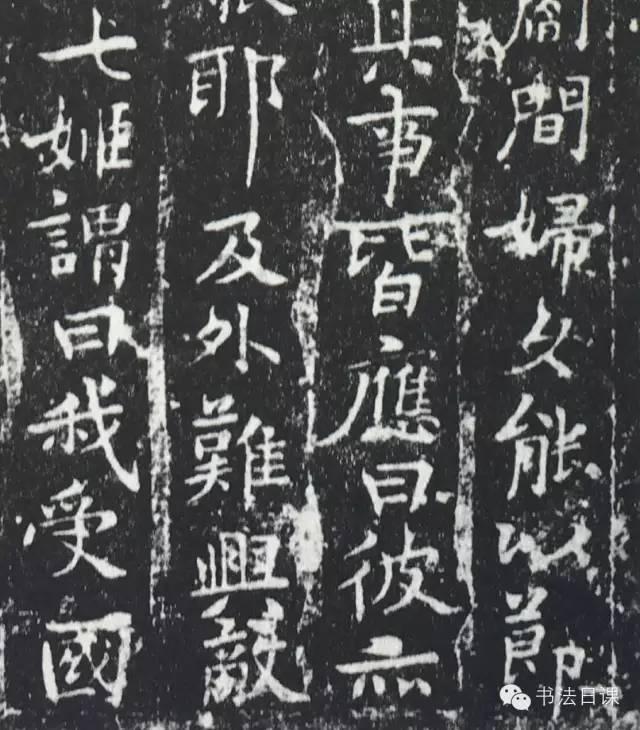 間婦女能以節
其事皆應曰彼亦
耶及外難興敵
七姬謂曰我受國
书法日课